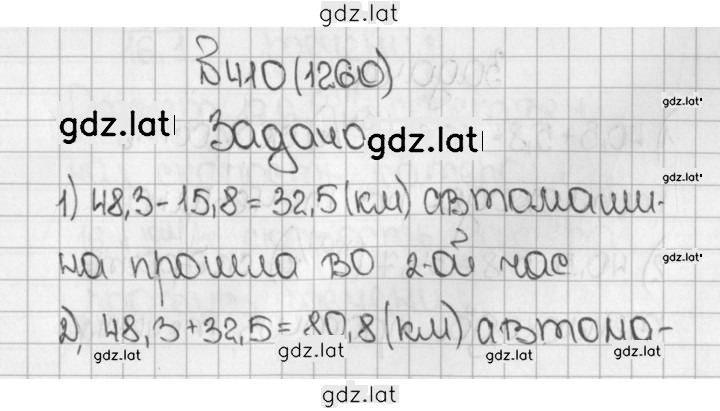 gdz.lat
В 410 (1260)
gdz.lat
gdz.lat Задача gdz.lat
gdz.lat
1) 48,3-15,8=32,5 (км) автомаши-
gdz.lat
на прошла во 2-ой час
2) 48,3+32,5=80,8 (км) автома-
gdz.lat gdz.lat gdz.lat gdz.lat
gdz.lat